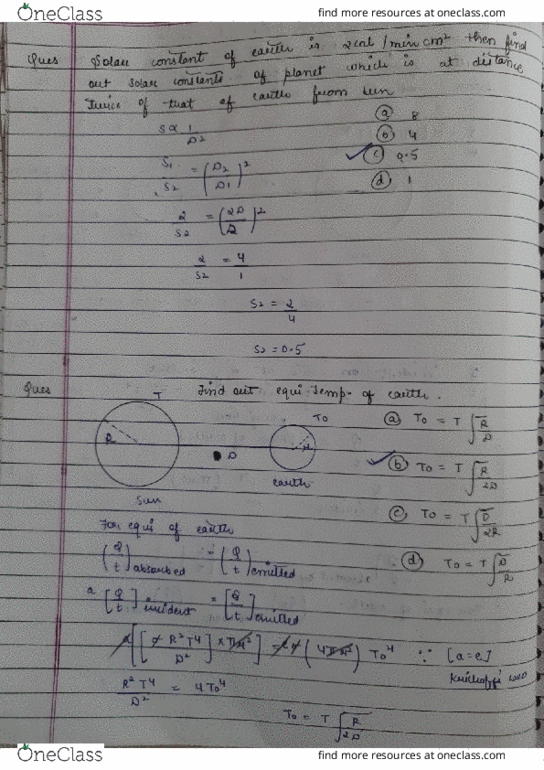 OneClass
find more resources at oneclass.com
Ques Solar constant of earth is 2cal/min cm² then find
out solar constants of planet which is at distance
twice of that of earth from sun
(a) 8
S ∝ 1/D²
(b) 4
✓(c) 0.5
S1/S2 = (D2/D1)²
(d) 1
2/S2 = (2D/D)²
2/S2 = 4/1
S2 = 2/4
S2 = 0.5
Ques Find out equi. temp. of earth.
T
R
D
To
r
sun
earth
(a) To = T √R/D
✓(b) To = T √R/2D
(c) To = T √D/2R
(d) To = T √D/R
For equi of earth
(Q/t) absorbed = (Q/t) emitted
a [Q/t] incident = [Q/t] emitted
a[[σ R²T⁴/D²] × πr²] = e σ (4πr²) To⁴ ∵ [a=e]
R²T⁴/D² = 4To⁴
To = T √R/2D
OneClass
find more resources at oneclass.com